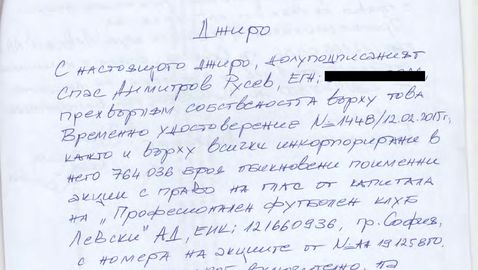 Джиро
С настоящото джиро, долуподписаният
Спас Димитров Русев, ЕГН:
прехвърлям собствеността върху това
Временно удостоверение №1448/12.02.2015г,
както и върху всички инкорпорирани в
него 764 036 броя обикновени поименни
акции с право на глас от капитала
на „Професионален футболен клуб
Левски" АД, ЕИК: 121660936, гр. София,
с номера на акциите от №АА
включително, на